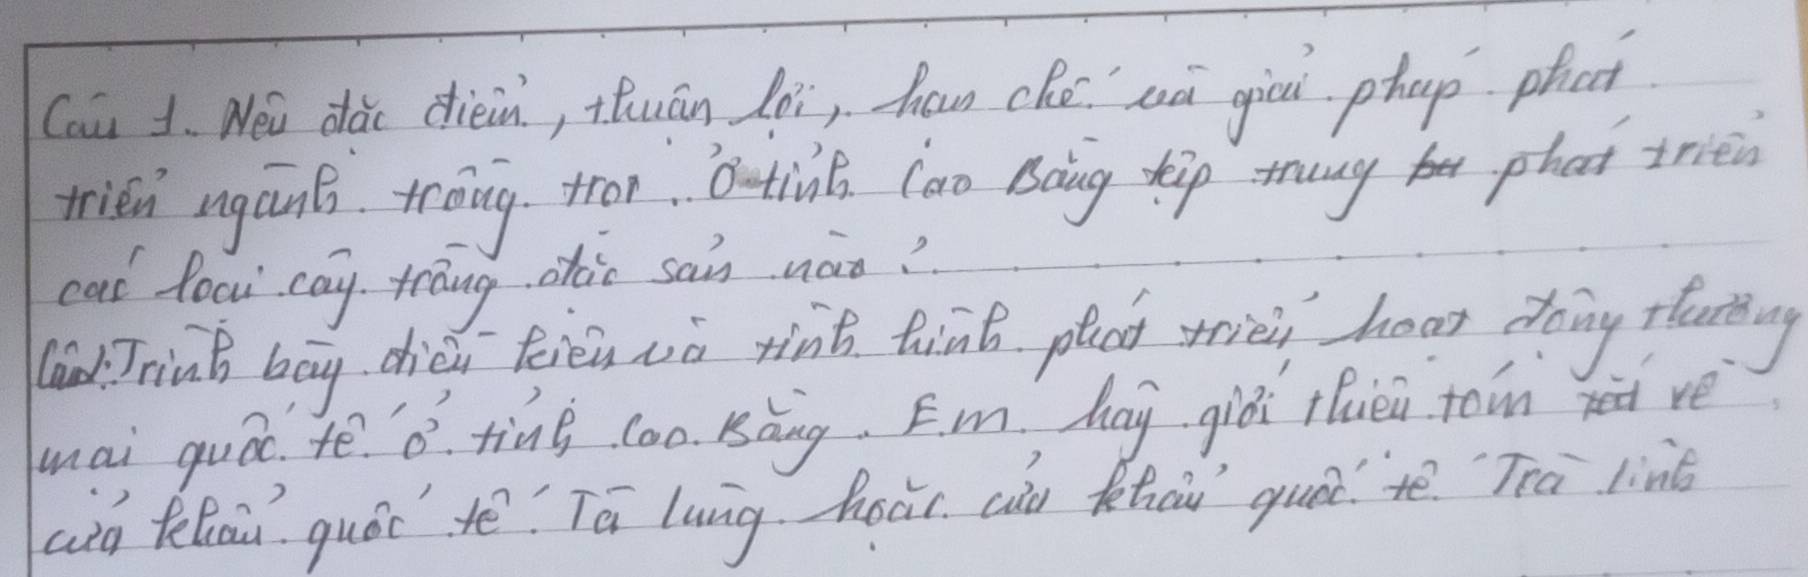 Câu 1. Nêu đặc điểm, thuận lợi, hạn chế và giải pháp phát
triển ngành trồng trọt. Ở tỉnh Cao Bằng tập trung phát triển
các loại cây trồng đặc sản nào?
Câu 2: Trình bày điều kiện và tình hình phát triển hoạt động thương
mại quốc tế ở tỉnh Cao Bằng. Em hãy giới thiệu tóm tắt về
cửa khẩu quốc tế Tà lùng hoặc cửa khẩu quốc tế Trà lĩnh